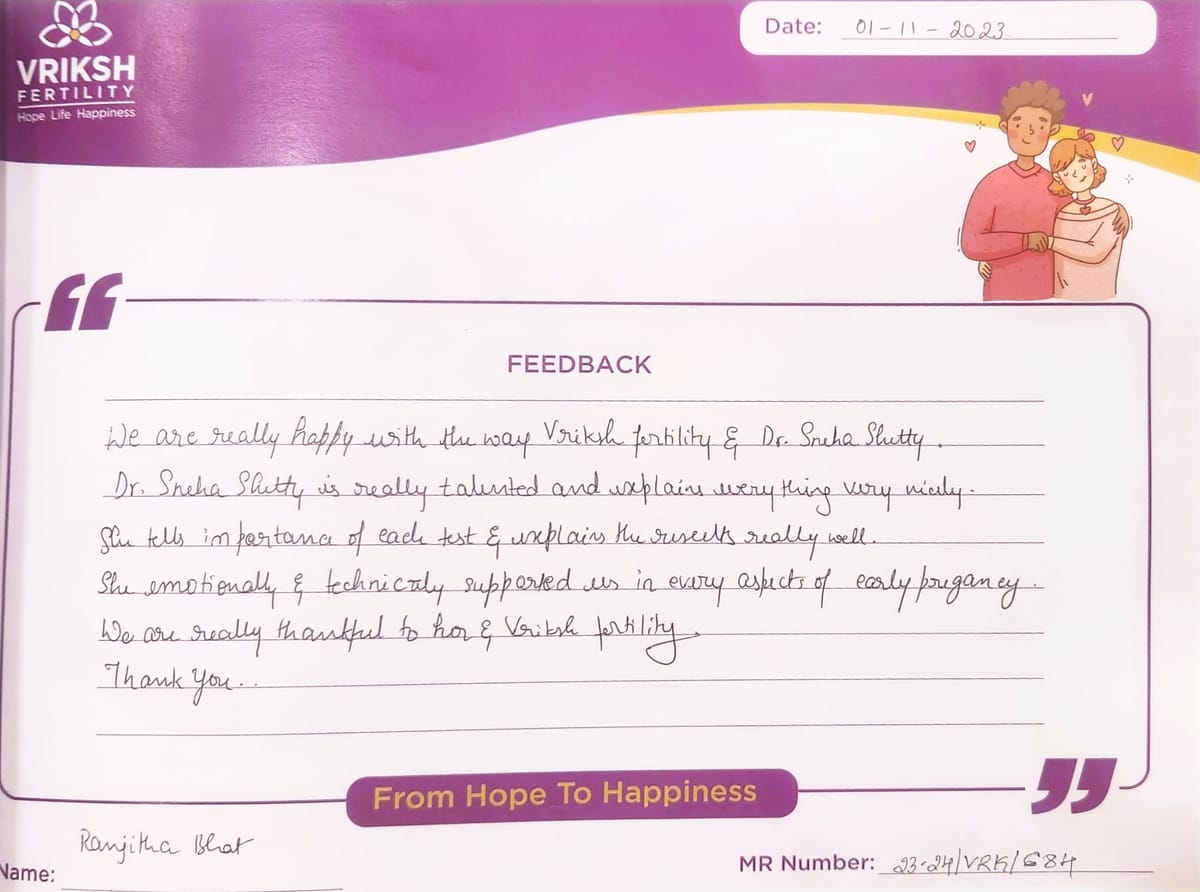 VRIKSH
FERTILITY
Hope Life Happiness
Date: 01-11-2023
FEEDBACK
We are really happy with the way Vriksh fertility & Dr. Sneha Shetty.
Dr. Sneha Shetty is really talented and explains everything very nicely.
She tells importance of each test & explains the results really well.
She emotionally & technicaly supported us in every aspects of early pregancy.
We are really thankful to her & Vriksh fertility.
Thank You...
From Hope To Happiness
Name: Ranjitha Bhat
MR Number: 23-24/VRK/684